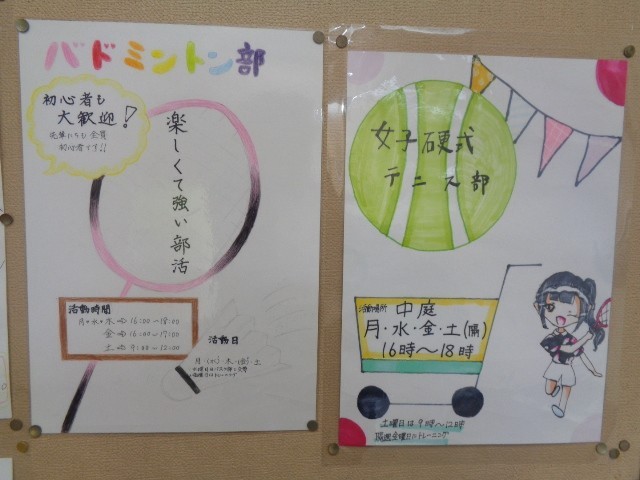 バドミントン部
初心者も
大歓迎!
先輩たちも全員
初心者です!!
楽しくて強い部活
活動時間
月・水・木 → 16:00〜18:00
金 → 16:00〜17:00
土 → 9:00〜12:00
活動日
月・(水)・木・(金)・土
女子硬式
テニス部
活動場所 中庭
月・水・金・土(隔)
16時〜18時
土曜日は9時〜12時
隔週金曜日にトレーニング